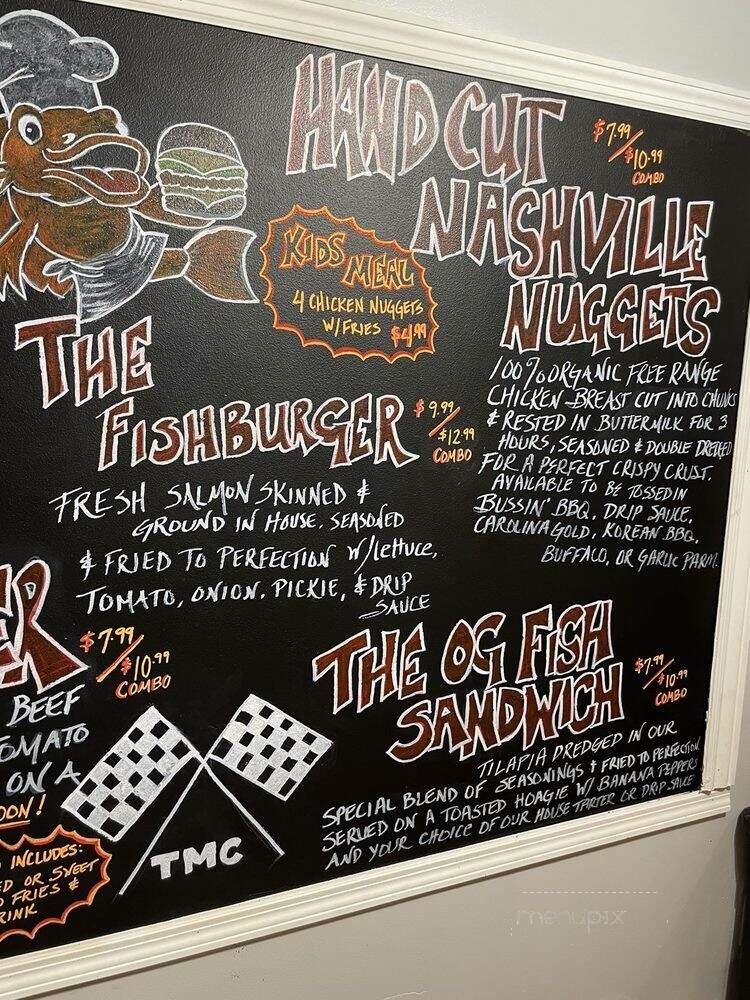 HAND CUT
NASHVILLE
NUGGETS
$7.99/
$10.99
COMBO
100% ORGANIC FREE RANGE
CHICKEN BREAST CUT INTO CHUNKS
& RESTED IN BUTTERMILK FOR 3
HOURS, SEASONED & DOUBLE DREDGED
FOR A PERFECT CRISPY CRUST.
AVAILABLE TO BE TOSSED IN
BUSSIN' BBQ, DRIP SAUCE,
CAROLINA GOLD, KOREAN BBQ,
BUFFALO, OR GARLIC PARM.
KIDS
MEAL
4 CHICKEN NUGGETS
W/FRIES $4.99
THE
FISHBURGER
$9.99/
$12.99
COMBO
FRESH SALMON SKINNED &
GROUND IN HOUSE. SEASONED
& FRIED TO PERFECTION W/lettuce,
TOMATO, ONION. PICKIE, & DRIP
SAUCE
ER
$7.99/
$10.99
COMBO
BEEF
TOMATO
ON A
OON!
INCLUDES:
ED OR SWEET
FRIES &
RINK
TMC
THE OG FISH
SANDWICH
$7.99/
$10.99
COMBO
TILAPIA DREDGED IN OUR
SPECIAL BLEND OF SEASONINGS & FRIED TO PERFECTION
SERVED ON A TOASTED HOAGIE W/ BANANA PEPPERS
AND YOUR CHOICE OF OUR HOUSE TARTER OR DRIP SAUCE
menupix